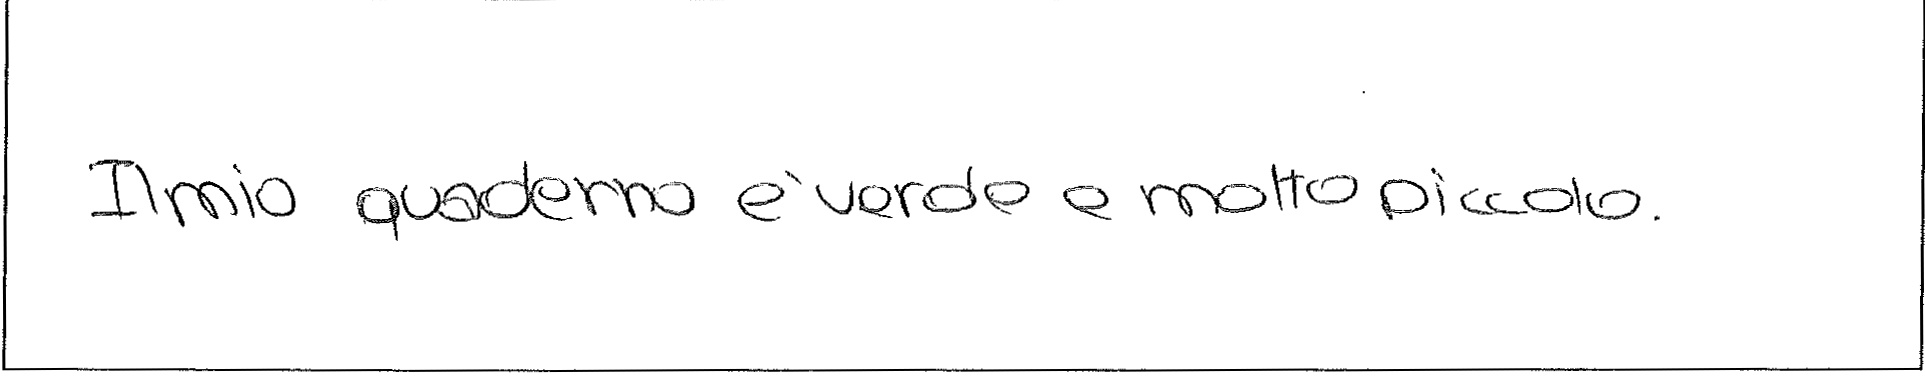 Il mio quaderno è verde e molto piccolo.